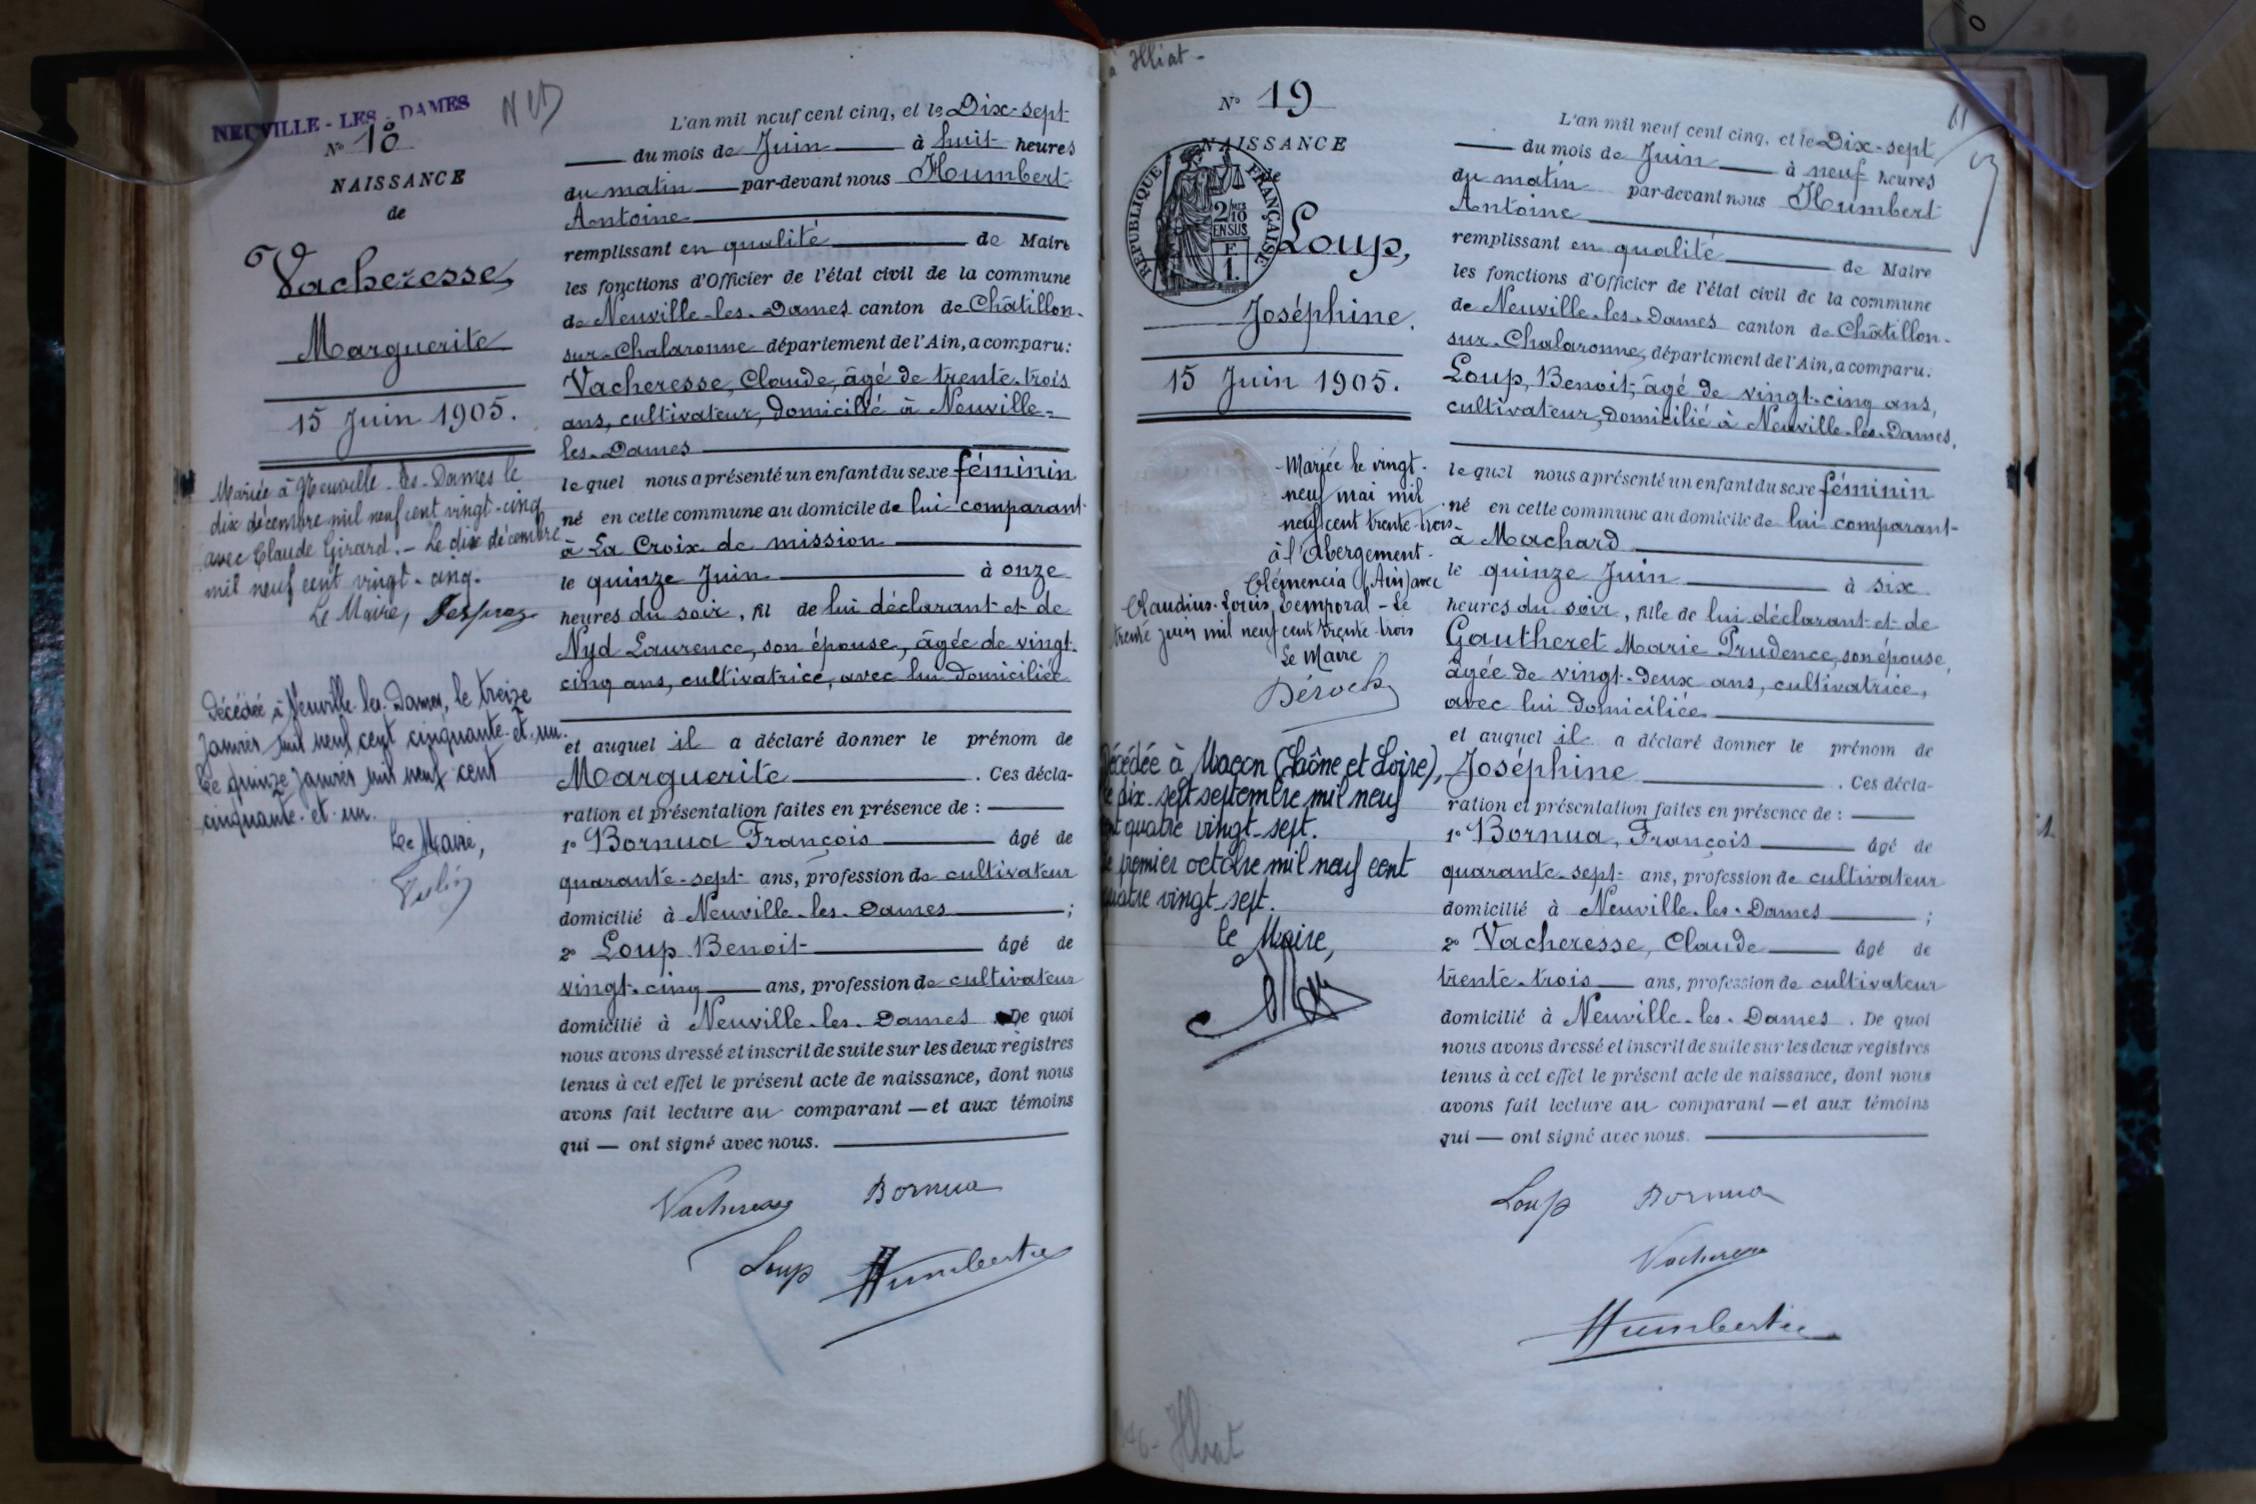 NEUVILLE - LES - DAMES
N° 18
NAISSANCE
de
Vacheresse,
Marguerite
15 Juin 1905.
Mariée à Neuville-les-Dames le
dix décembre mil neuf cent vingt-cinq
avec Claude Girard. - Le dix décembre
mil neuf cent vingt-cinq.
Le Maire,
Décédée à Neuville-les-Dames, le treize
janvier mil neuf cent cinquante-et-un.
Le quinze janvier mil neuf cent
cinquante-et-un.
Le Maire,
L'an mil neuf cent cinq, et le Dix-sept
du mois de Juin à huit heures
du matin par-devant nous Humbert
Antoine
remplissant en qualité de Maire
les fonctions d'Officier de l'état civil de la commune
de Neuville-les-Dames canton de Châtillon-
sur-Chalaronne département de l'Ain, a comparu:
Vacheresse, Claude, âgé de trente-trois
ans, cultivateur, domicilié à Neuville-
les-Dames
lequel nous a présenté un enfant du sexe féminin
né en cette commune au domicile de lui comparant
à La Croix de mission
le quinze Juin à onze
heures du soir, fil de lui déclarant et de
Nyd Laurence, son épouse, âgée de vingt-
cinq ans, cultivatrice, avec lui domiciliée
et auquel il a déclaré donner le prénom de
Marguerite. Ces décla-
ration et présentation faites en présence de :
1° Bornua François âgé de
quarante-sept ans, profession de cultivateur
domicilié à Neuville-les-Dames ;
2° Loup Benoit âgé de
vingt-cinq ans, profession de cultivateur
domicilié à Neuville-les-Dames. De quoi
nous avons dressé et inscrit de suite sur les deux registres
tenus à cet effet le présent acte de naissance, dont nous
avons fait lecture au comparant — et aux témoins
qui — ont signé avec nous.
Vacheresse Bornua
Loup Humbert
à Illiat -
N° 19
NAISSANCE
de
REPUBLIQUE FRANÇAISE
2/10
EN SUS
F
1.
Loup,
Joséphine.
15 Juin 1905.
Mariée le vingt-
neuf mai mil
neuf cent trente-trois
à l'Abergement-
Clémencia (Ain) avec
Claudius-Louis Temporal - Le
trente juin mil neuf cent trente-trois
Le Maire
Décédée à Macon (Saône et Loire),
le dix-sept septembre mil neuf
cent quatre vingt-sept.
Le premier octobre mil neuf cent
quatre vingt-sept.
le Maire,
L'an mil neuf cent cinq, et le Dix-sept
du mois de Juin à neuf heures
du matin par-devant nous Humbert
Antoine
remplissant en qualité de Maire
les fonctions d'Officier de l'état civil de la commune
de Neuville-les-Dames canton de Châtillon-
sur-Chalaronne, département de l'Ain, a comparu:
Loup, Benoit, âgé de vingt-cinq ans,
cultivateur, domicilié à Neuville-les-Dames,
lequel nous a présenté un enfant du sexe féminin
né en cette commune au domicile de lui comparant
à Machard
le quinze Juin à six
heures du soir, fille de lui déclarant et de
Gautheret Marie Prudence, son épouse,
âgée de vingt-deux ans, cultivatrice,
avec lui domiciliée
et auquel il a déclaré donner le prénom de
Joséphine. Ces décla-
ration et présentation faites en présence de :
1° Bornua, François âgé de
quarante-sept ans, profession de cultivateur
domicilié à Neuville-les-Dames ;
2° Vacheresse, Claude âgé de
trente-trois ans, profession de cultivateur
domicilié à Neuville-les-Dames. De quoi
nous avons dressé et inscrit de suite sur les deux registres
tenus à cet effet le présent acte de naissance, dont nous
avons fait lecture au comparant — et aux témoins
qui — ont signé avec nous.
Loup Bornua
Vacheresse
Humbert
Illiat